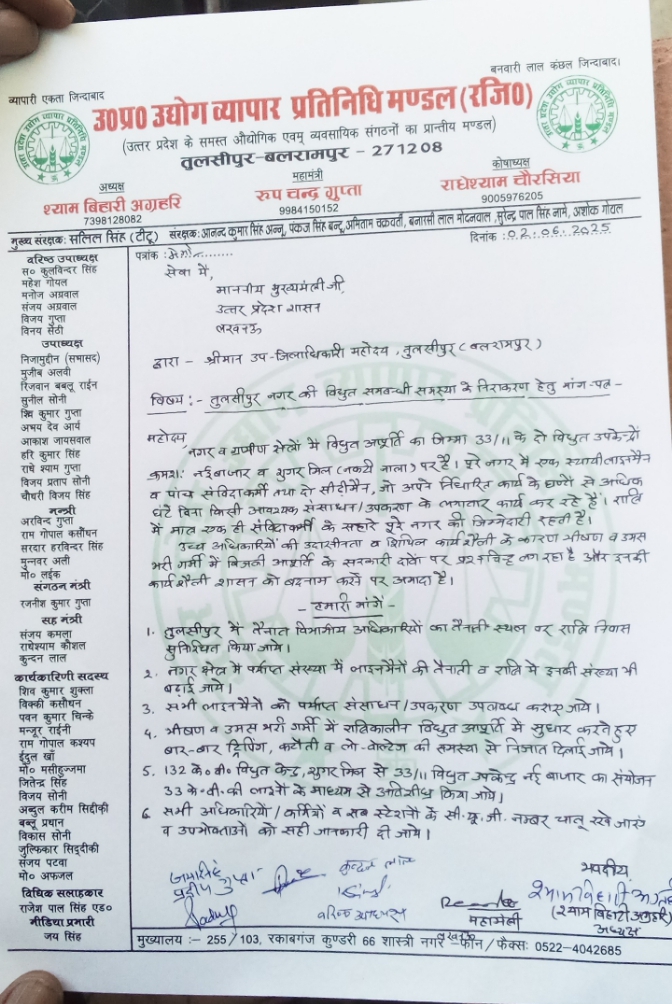 बनवारी लाल कंछल जिन्दाबाद।
व्यापारी एकता जिन्दाबाद
उ०प्र० उद्योग व्यापार प्रतिनिधि मण्डल (रजि०)
(उत्तर प्रदेश के समस्त औद्योगिक एवम् व्यवसायिक संगठनों का प्रान्तीय मण्डल)
तुलसीपुर-बलरामपुर - 271208
अध्यक्ष
श्याम बिहारी अग्रहरि
7398128082
महामंत्री
रुप चन्द्र गुप्ता
9984150152
कोषाध्यक्ष
राधेश्याम चौरसिया
9005976205
मुख्य संरक्षक: सलिल सिंह (टीटू) संरक्षक: आनन्द कुमार सिंह अन्नू, पंकज सिंह बन्टू, अमिताम चक्रवर्ती, बनारसी लाल मोदनवाल, सुरेन्द्र पाल सिंह नामे, अशोक गोयल
पत्रांक :
दिनांक : 02.06.2025
वरिष्ठ उपाध्यक्ष
स० कुलविन्दर सिंह
महेश गोयल
मनोज अग्रवाल
संजय अग्रवाल
विजय गुप्ता
विनय सेठी
उपाध्यक्ष
निजामुद्दीन (सभासद)
मुजीब अलवी
रिजवान बबलू राईन
सुनील सोनी
शिव कुमार गुप्ता
अभय देव आर्य
आकाश जायसवाल
हरि कुमार सिंह
राधे श्याम गुप्ता
विजय प्रताप सोनी
चौधरी विजय सिंह
मन्त्री
अरविन्द गुप्ता
राम गोपाल कसौधन
सरदार हरविन्दर सिंह
मुन्नवर अली
मो० लईक
संगठन मंत्री
रजनीश कुमार गुप्ता
सह मंत्री
संजय कमला
राधेश्याम कौशल
कुन्दन लाल
कार्यकारिणी सदस्य
शिव कुमार शुक्ला
विक्की कसौधन
पवन कुमार चिन्के
मन्जूर राईनी
राम गोपाल कश्यप
ईदुल खाँ
मो० मसीहुज्जमा
जितेन्द्र सिंह
विजय सोनी
अब्दुल करीम सिद्दीकी
बब्लू प्रधान
विकास सोनी
जुल्फिकार सिद्दीकी
संजय पटवा
मो० अफजल
विधिक सलाहकार
राजेश पाल सिंह एड०
मीडिया प्रभारी
जय सिंह
सेवा में,
माननीय मुख्यमंत्री जी,
उत्तर प्रदेश शासन
लखनऊ
द्वारा - श्रीमान उप-जिलाधिकारी महोदय, तुलसीपुर (बलरामपुर)
विषय :- तुलसीपुर नगर की विद्युत सम्बन्धी समस्या के निराकरण हेतु मांग-पत्र -
महोदय,
नगर व ग्रामीण क्षेत्रों में विद्युत आपूर्ति का जिम्मा 33/11 के दो विद्युत उपकेन्द्रों
क्रमशः नई बाजार व शुगर मिल (नकटी नाला) पर है। पूरे नगर में एक स्थायी लाइनमैन
व पांच संविदाकर्मी तथा दो सीढ़ीमैन, जो अपने निर्धारित कार्य के घण्टों से अधिक
घंटे बिना किसी आवश्यक संसाधन/उपकरण के लगातार कार्य कर रहे हैं। रात्रि
में मात्र एक ही संविदाकर्मी के सहारे पूरे नगर की जिम्मेदारी रहती है।
उच्च अधिकारियों की उदासीनता व शिथिल कार्यशैली के कारण भीषण व उमस
भरी गर्मी में बिजली आपूर्ति के सरकारी दावों पर प्रश्नचिन्ह लग रहा है और इनकी
कार्यशैली शासन को बदनाम करने पर अमादा है।
- हमारी मांगें -
1. तुलसीपुर में तैनात विभागीय अधिकारियों का तैनाती स्थल पर रात्रि निवास
सुनिश्चित किया जाये।
2. नगर क्षेत्र में पर्याप्त संख्या में लाइनमैनों की तैनाती व रात्रि में इनकी संख्या भी
बढ़ाई जाये।
3. सभी लाइनमैनों को पर्याप्त संसाधन/उपकरण उपलब्ध कराए जाये।
4. भीषण व उमस भरी गर्मी में रात्रिकालीन विद्युत आपूर्ति में सुधार करते हुए
बार-बार ट्रिपिंग, कटौती व लो-वोल्टेज की समस्या से निजात दिलाई जाये।
5. 132 के०वी० विद्युत केन्द्र, शुगर मिल से 33/11 विद्युत उपकेन्द्र नई बाजार का संयोजन
33 के०वी० की लाइनों के माध्यम से अतिशीघ्र किया जाये।
6. सभी अधिकारियों/कर्मियों व सब स्टेशनों के सी.यू.जी. नम्बर चालू रखे जाएं
व उपभोक्ताओं को सही जानकारी दी जाये।
प्रदीप गुप्ता
कुन्दन लाल
वरिष्ठ उपाध्यक्ष
महामंत्री
भवदीय
(श्याम बिहारी अग्रहरि)
अध्यक्ष
मुख्यालय :- 255/103, रकाबगंज कुण्डरी 66 शास्त्री नगर लखनऊ - फोन/फैक्स: 0522-4042685